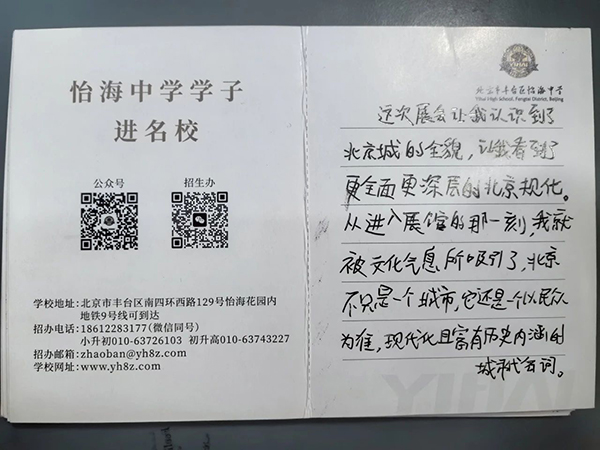 怡海中学学子
进名校
公众号 招生办
学校地址:北京市丰台区南四环西路129号怡海花园内
地铁9号线可到达
招办电话:18612283177(微信同号)
小升初010-63726103 初升高010-63743227
招办邮箱:zhaoban@yh8z.com
学校网址:www.yh8z.com
YIHAI
北京市丰台区怡海中学
Yihai High School, Fengtai District, Beijing
这次展会让我认识到了
北京城的全貌,让我看到了
更全面更深层的北京规化。
从进入展馆的那一刻,我就
被文化气息所吸引了,北京
不只是一个城市,它还是一个以民众
为准,现代化且富有历史内涵的
城市代名词。
YIHAI